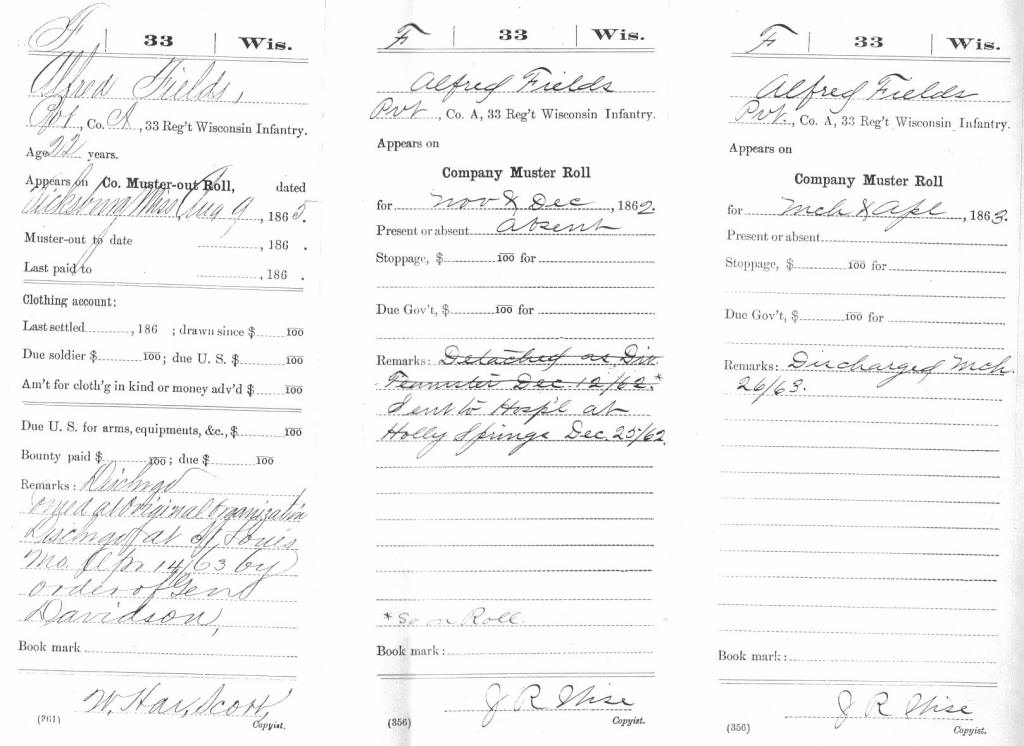 F | 33 | Wis.
Alfred Fields,
Pvt, Co. A, 33 Reg't Wisconsin Infantry.
Age 22 years.
Appears on Co. Muster-out Roll, dated
Vicksburg Miss Aug 9, 1865.
Muster-out to date , 186 .
Last paid to , 186 .
Clothing account:
Last settled , 186 ; drawn since $ 100
Due soldier $ 100; due U. S. $ 100
Am't for cloth'g in kind or money adv'd $ 100
Due U. S. for arms, equipments, &c., $ 100
Bounty paid $ 100; due $ 100
Remarks: Dischgd
at original organization
Dischgd at St Louis
Mo. Apr 14/63 by
order of Genl
Davidson,
Book mark
(361) Copyist.
F | 33 | Wis.
Alfred Fields
Pvt., Co. A, 33 Reg't Wisconsin Infantry.
Appears on
Company Muster Roll
for Nov & Dec, 1862.
Present or absent Absent
Stoppage, $ 100 for
Due Gov't, $ 100 for
Remarks: Detached as Div.
Teamster Dec. 12/62.*
Sent to Hosp'l at
Holly Springs Dec. 25/62
*So on Roll.
Book mark:
J R Wise
(356) Copyist.
F | 33 | Wis.
Alfred Fields
Pvt., Co. A, 33 Reg't Wisconsin Infantry.
Appears on
Company Muster Roll
for Mch & Apl, 1863.
Present or absent
Stoppage, $ 100 for
Due Gov't, $ 100 for
Remarks: Discharged Mch.
26/63.
Book mark:
J R Wise
(356) Copyist.